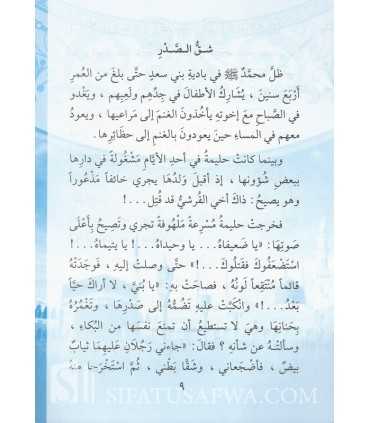 شــقُّ الــصَّــدْرِ
ظلَّ محمَّدٌ ﷺ في باديةِ بني سعدٍ حتَّى بلغَ من العُمرِ
أَرْبَعَ سنينَ ، يُشَارِكُ الأطفالَ في جِدِّهِم ولَعِبِهم ، ويَغْدو
في الصَّباحِ معَ إخوتِهِ يأخُذونَ الغنمَ إلى مَراعيها ، ويعودُ
معهم في المساءِ حينَ يعودونَ بالغنمِ إلى حظائِرِها .
وبينما كانتْ حليمةُ في أحدِ الأيَّامِ مَشْغُولةً في دارِها
ببعضِ شُؤونِها ، إذ أقبلَ ولدُها يجري خائفاً مَذْعُوراً
وهو يصيحُ : ذاكَ أخي القُرشيُّ قد قُتِلَ . . . !
فخرجتْ حليمةُ مُسرِعةً مَلْهُوفةً تجري وتَصيحُ بِأَعْلى
صَوتِها : «يا ضَعيفاهُ... يا وحيداهُ...! يا يتيماهُ...!
اسْتَضْعَفُوكَ فقتلُوكَ...!» حتَّى وصلتْ إليهِ ، فوَجَدَتْهُ
قائماً مُنْتَقِعاً لَونُهُ ، فصاحَتْ بهِ : «يا بُنَيَّ ، لا أراكَ حيّاً
بَعْدُ...!» وانكَبَّتْ عليهِ تَضُمُّهُ إلى صَدْرِهَا ، وتَغْمُرُهُ
بِحَنَانِها وهيَ لا تستطيعُ أن تمنعَ نفسَها من البُكاءِ ،
وسألتْهُ عن شأنِهِ ؟ فقالَ : «جاءَني رَجُلانِ عَلَيهِمَا ثيابٌ
بيضٌ ، فأَضْجَعاني ، وشَقَّا بَطْني ، ثُمَّ اسْتَخْرَجا منهُ
٩
SIFATUSAFWA.COM